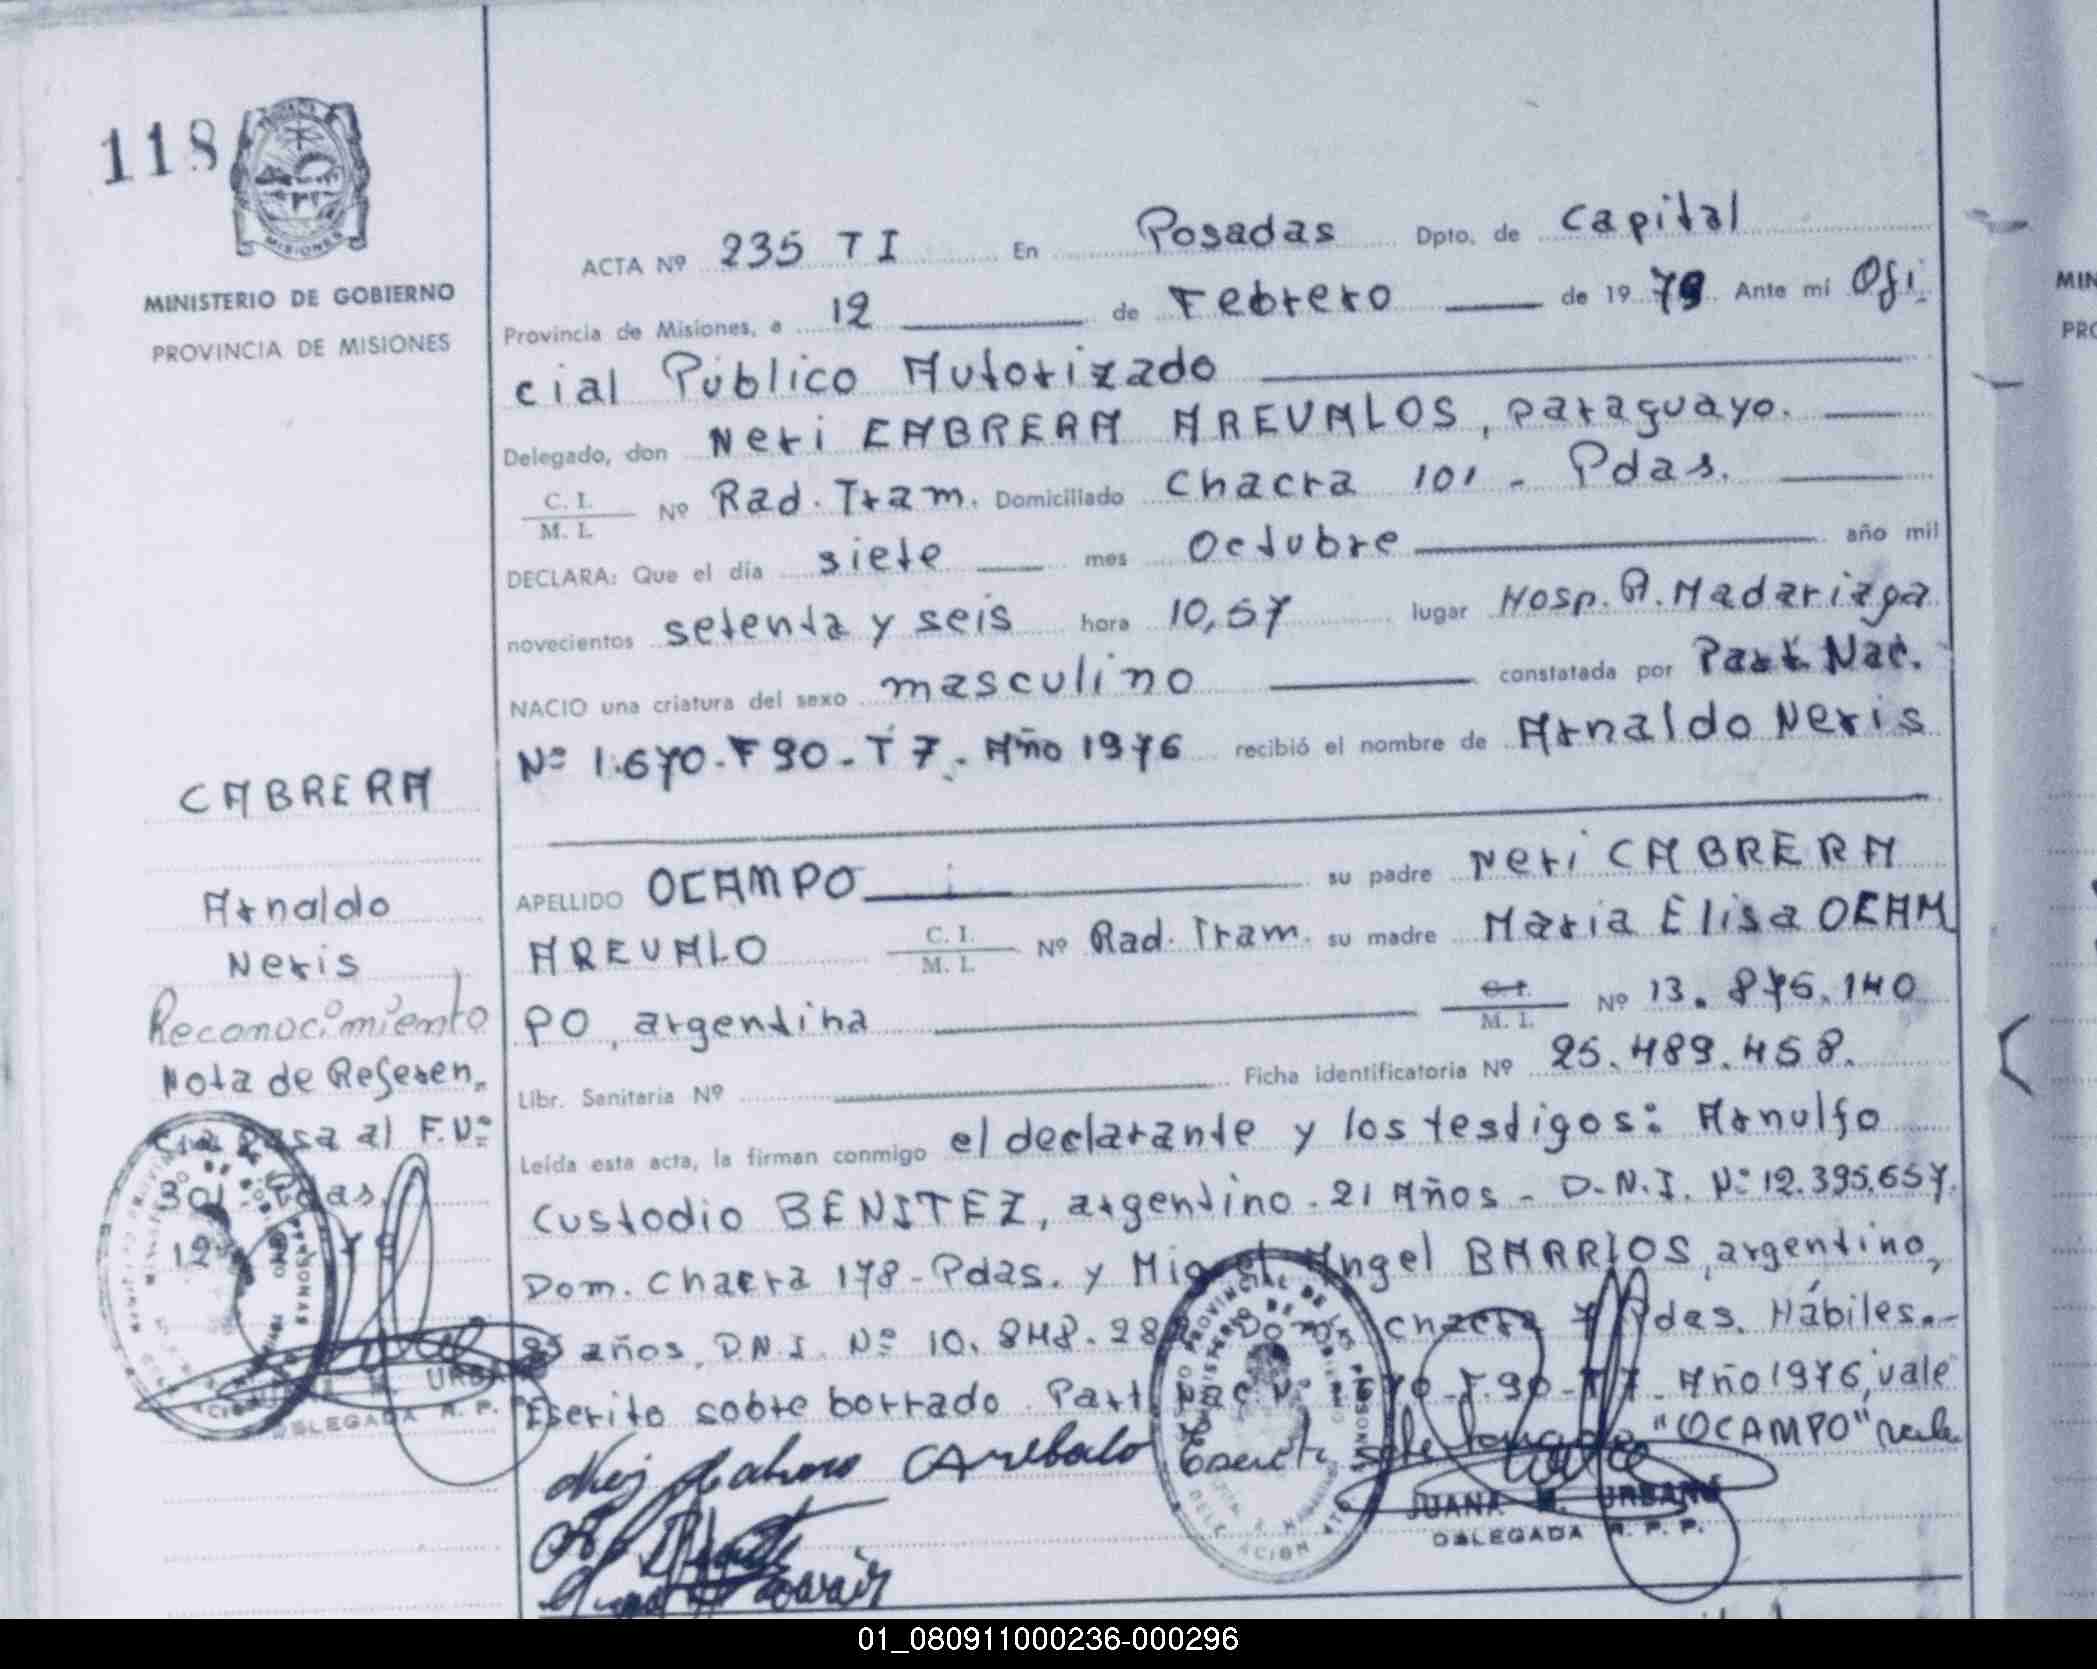 118
MISIONES
MINISTERIO DE GOBIERNO
PROVINCIA DE MISIONES
ACTA Nº 235 T I En Posadas Dpto. de Capital
Provincia de Misiones, a 12 de Febrero de 19 79 Ante mi Ofi
cial Público Autorizado
Delegado, don Neri CABRERA AREVALOS, paraguayo.
C. I. / M. I. Nº Rad. Tram. Domiciliado Chacra 101 - Pdas.
DECLARA: Que el día siete mes Octubre año mil
novecientos setenta y seis hora 10,57 lugar Hosp. R. Madariaga
NACIO una criatura del sexo masculino constatada por Part. Nac.
Nº 1.670-F 90-T 7. Año 1976 recibió el nombre de Arnaldo Neris
APELLIDO OCAMPO su padre Neri CABRERA
AREVALO C. I. / M. I. Nº Rad. Tram. su madre Maria Elisa OCAM
PO, argentina C. I. / M. I. Nº 13.876.140
Libr. Sanitaria Nº Ficha identificatoria Nº 25.489.458.
Leída esta acta, la firman conmigo el declarante y los testigos: Arnulfo
Custodio BENITEZ, argentino - 21 Años - D.N.I. Nº 12.395.657.
Dom. Chacra 178 - Pdas. y Miguel Angel BARRIOS, argentino,
años, D.N.I. Nº 10.848.28 Dom. chacra 7 Pdas. Hábiles.-
Escrito sobre borrado. Part. Nac. Nº 1670-F.90-T7. Año 1976, vale
"OCAMPO" vale
JUANA M. URBANO
DELEGADA R. P. P.
CABRERA
Arnaldo
Neris
Reconocimiento
Nota de Referen.
cia pasa al F. Nº
301. Pdas.
12
URBANO
DELEGADA R. P.
MIN
PRO
01_080911000236-000296